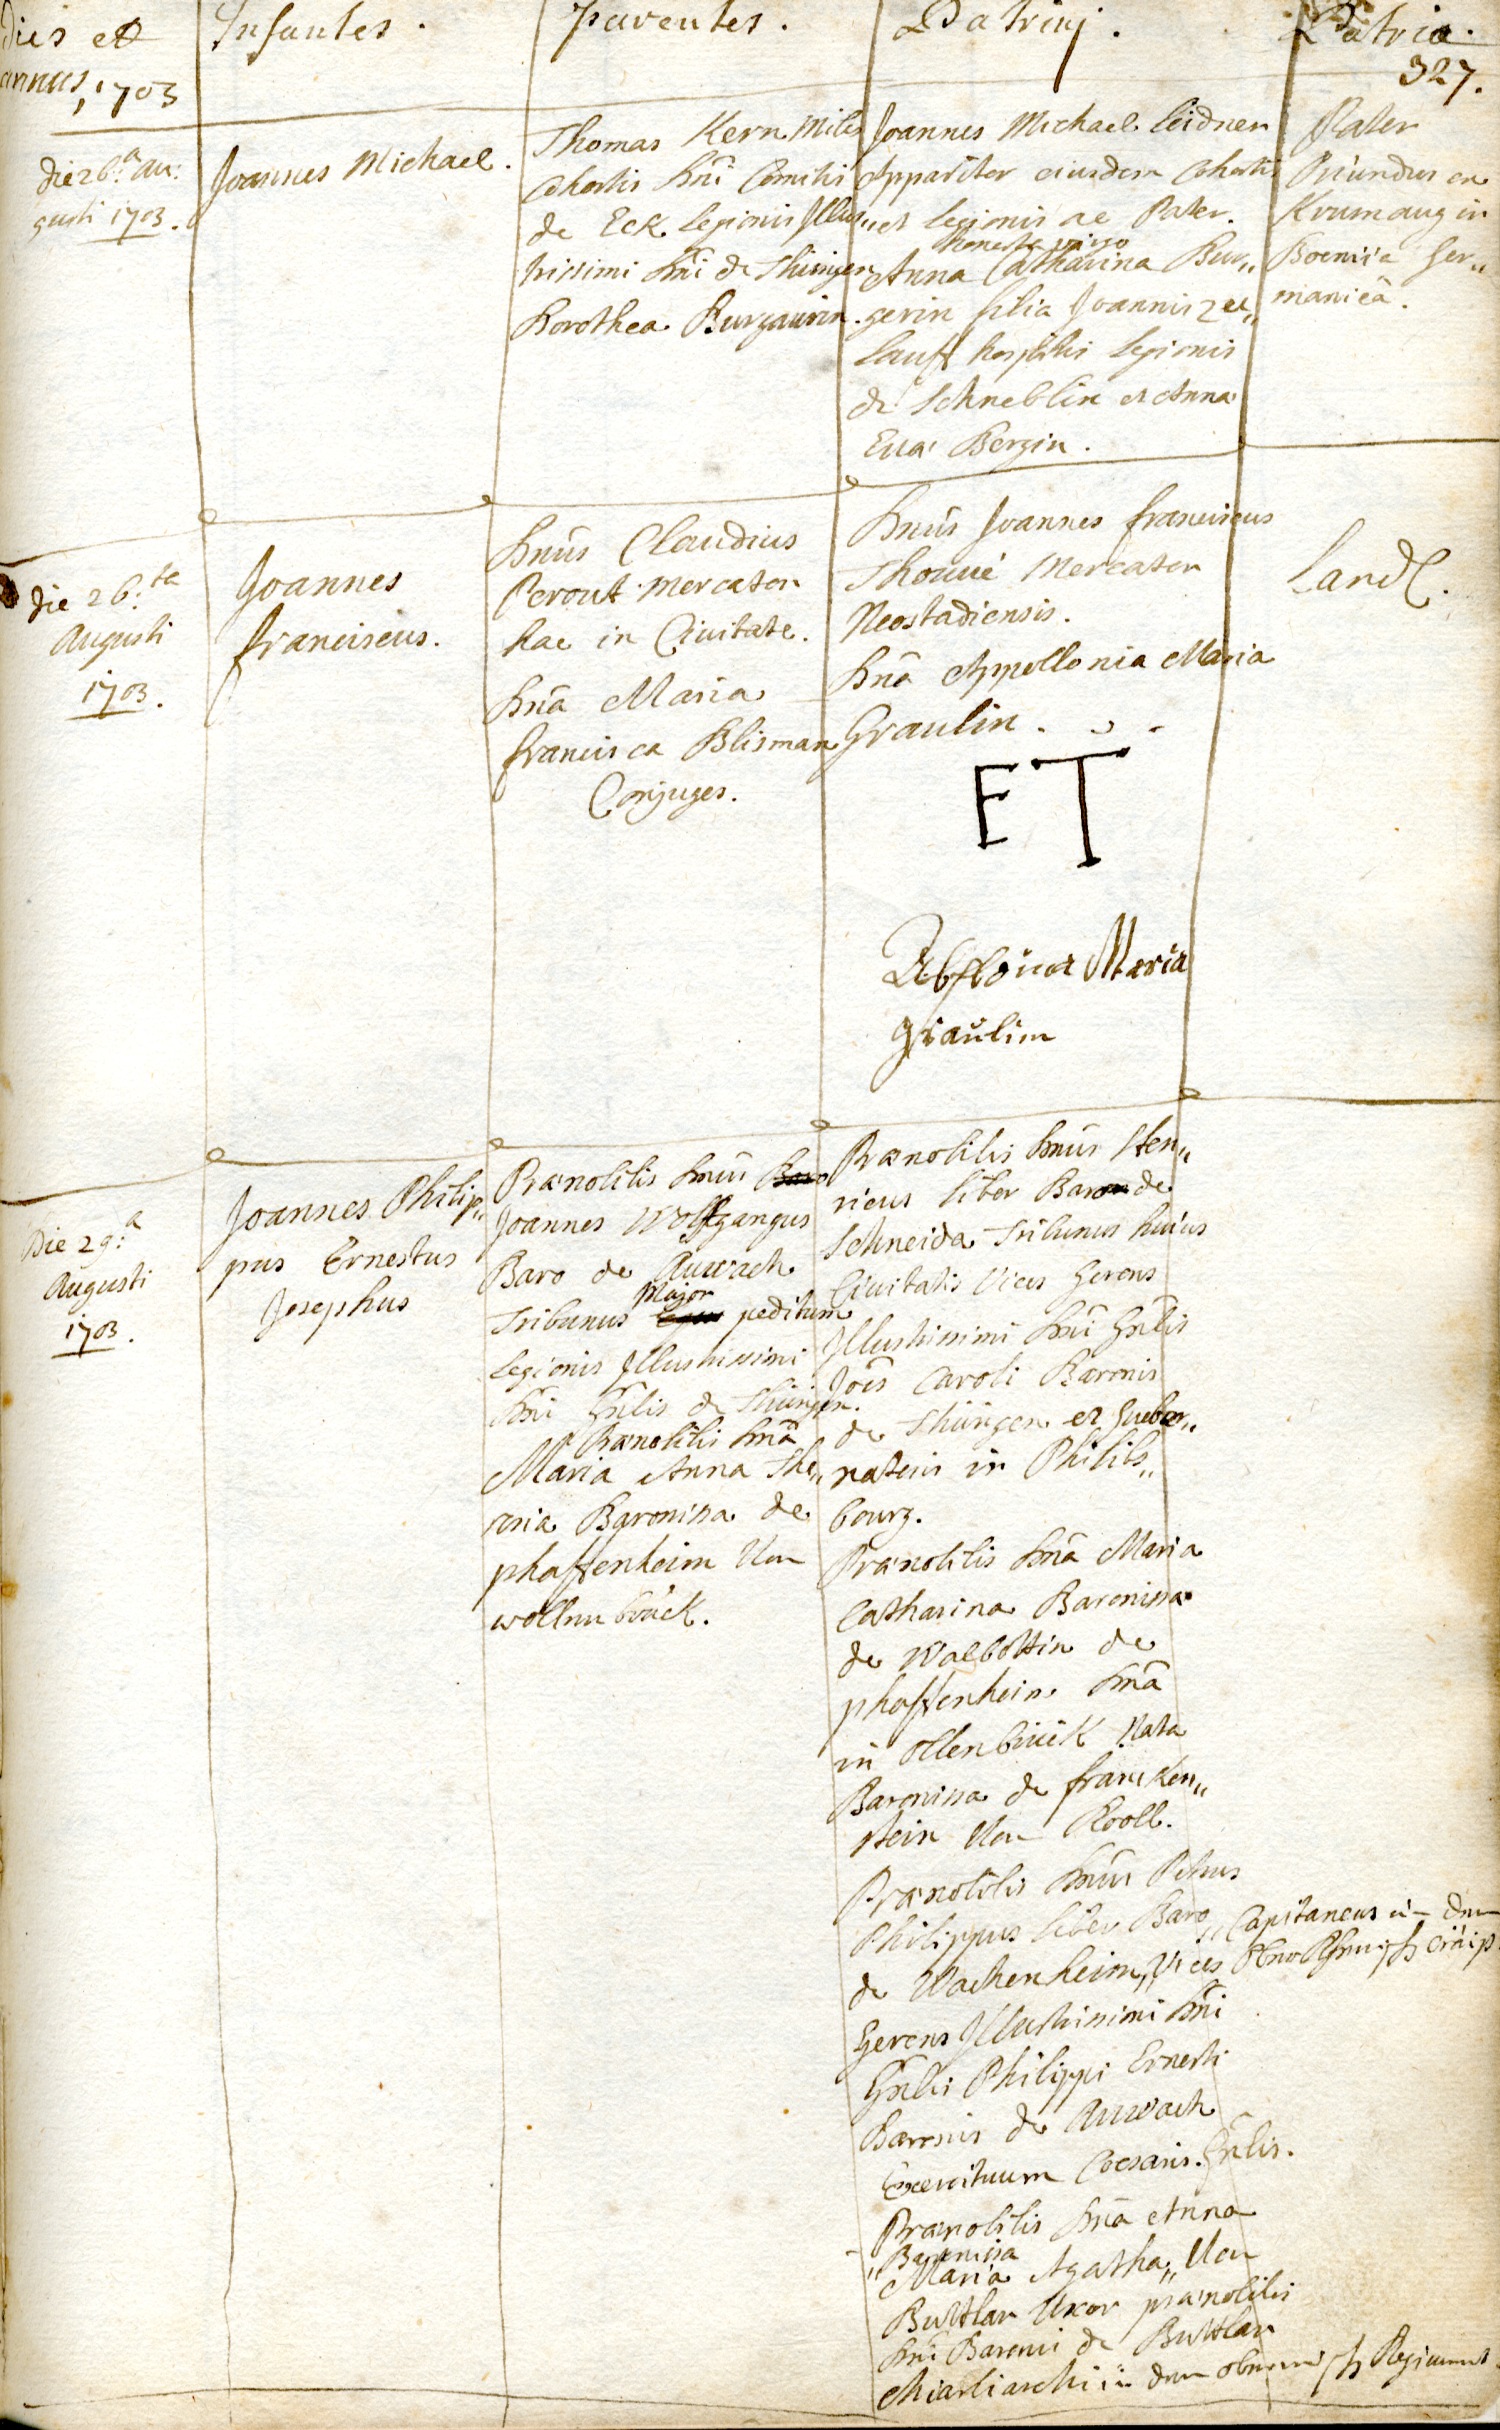 Dies et
annus, 1703
Infantes.
Parentes.
Patrinj.
Patria.
327.
die 26.a au:
gusti 1703.
Joannes Michael.
Thomas Kern Miles
Cohortis Dni Comitis
de Eck Legionis Illus
trissimi Dni de Thüngen
Dorothea Burgaurin.
Joannes Michael Leidner
Apparitor eiusdem Cohortis
et Legionis ac Pater.
honesta virgo
Anna Catharina Bur„
gerin filia Joannis
lauff hospitis Legionis
de Schneblin et Anna
Eua Bergin.
Pater
Oriundus ex
Krumaug in
Boemia Ger„
manica.
die 26.ta
Augusti
1703.
Joannes
franciscus.
Dnus Claudius
Perout Mercator
hac in Ciuitate.
Dna Maria
francisca Blisman
Conjuges.
Dnus Joannes franciscus
Thouué Mercator
Neostadiensis.
Dna Appollonia Maria
Graulin.
ET
Maria
graulin
Die 29.a
Augusti
1703.
Joannes Philip„
pus Ernestus
Josephus
Prænobilis Dnus Baro
Joannes Wolfgangus
Baro de Auwach
Major
Tribunus peditum
Legionis Illustrissimi
Dni Gnlis de Thüngen.
Prænobilis Dna
Maria Anna The„
resia Baronissa de
phaffenheim Von
wollnubrück.
Prænobilis Dnus Hen„
ricus liber Baro de
Schneida Tribunus huius
Ciuitatis Vices Gerens
Illustrissimi Dni Gnlis
Jois Caroli Baronis
de Thüngen et Guber„
natoris in Philibs„
bourg.
Prænobilis Dna Maria
Catharina Baronissa
de Walbottin de
phaffenheim Dna
in ollenbrück Nata
Baronissa de francken„
stein Von
Prænobilis Dnus Petrus
Philippus liber Baro „ Capitaneus
de Wachenheim, „ Vices
Gerens Illustrissimi Dni
Gnlis Philippi Ernesti
Baronis de Auwach
Exercituum Cæsaris Gnlis.
Prænobilis Dna Anna
„ Baronissa
Maria Agatha „ Von
Buttlar Uxor prænobilis
Dni Baronis de Buttlar
Regiment